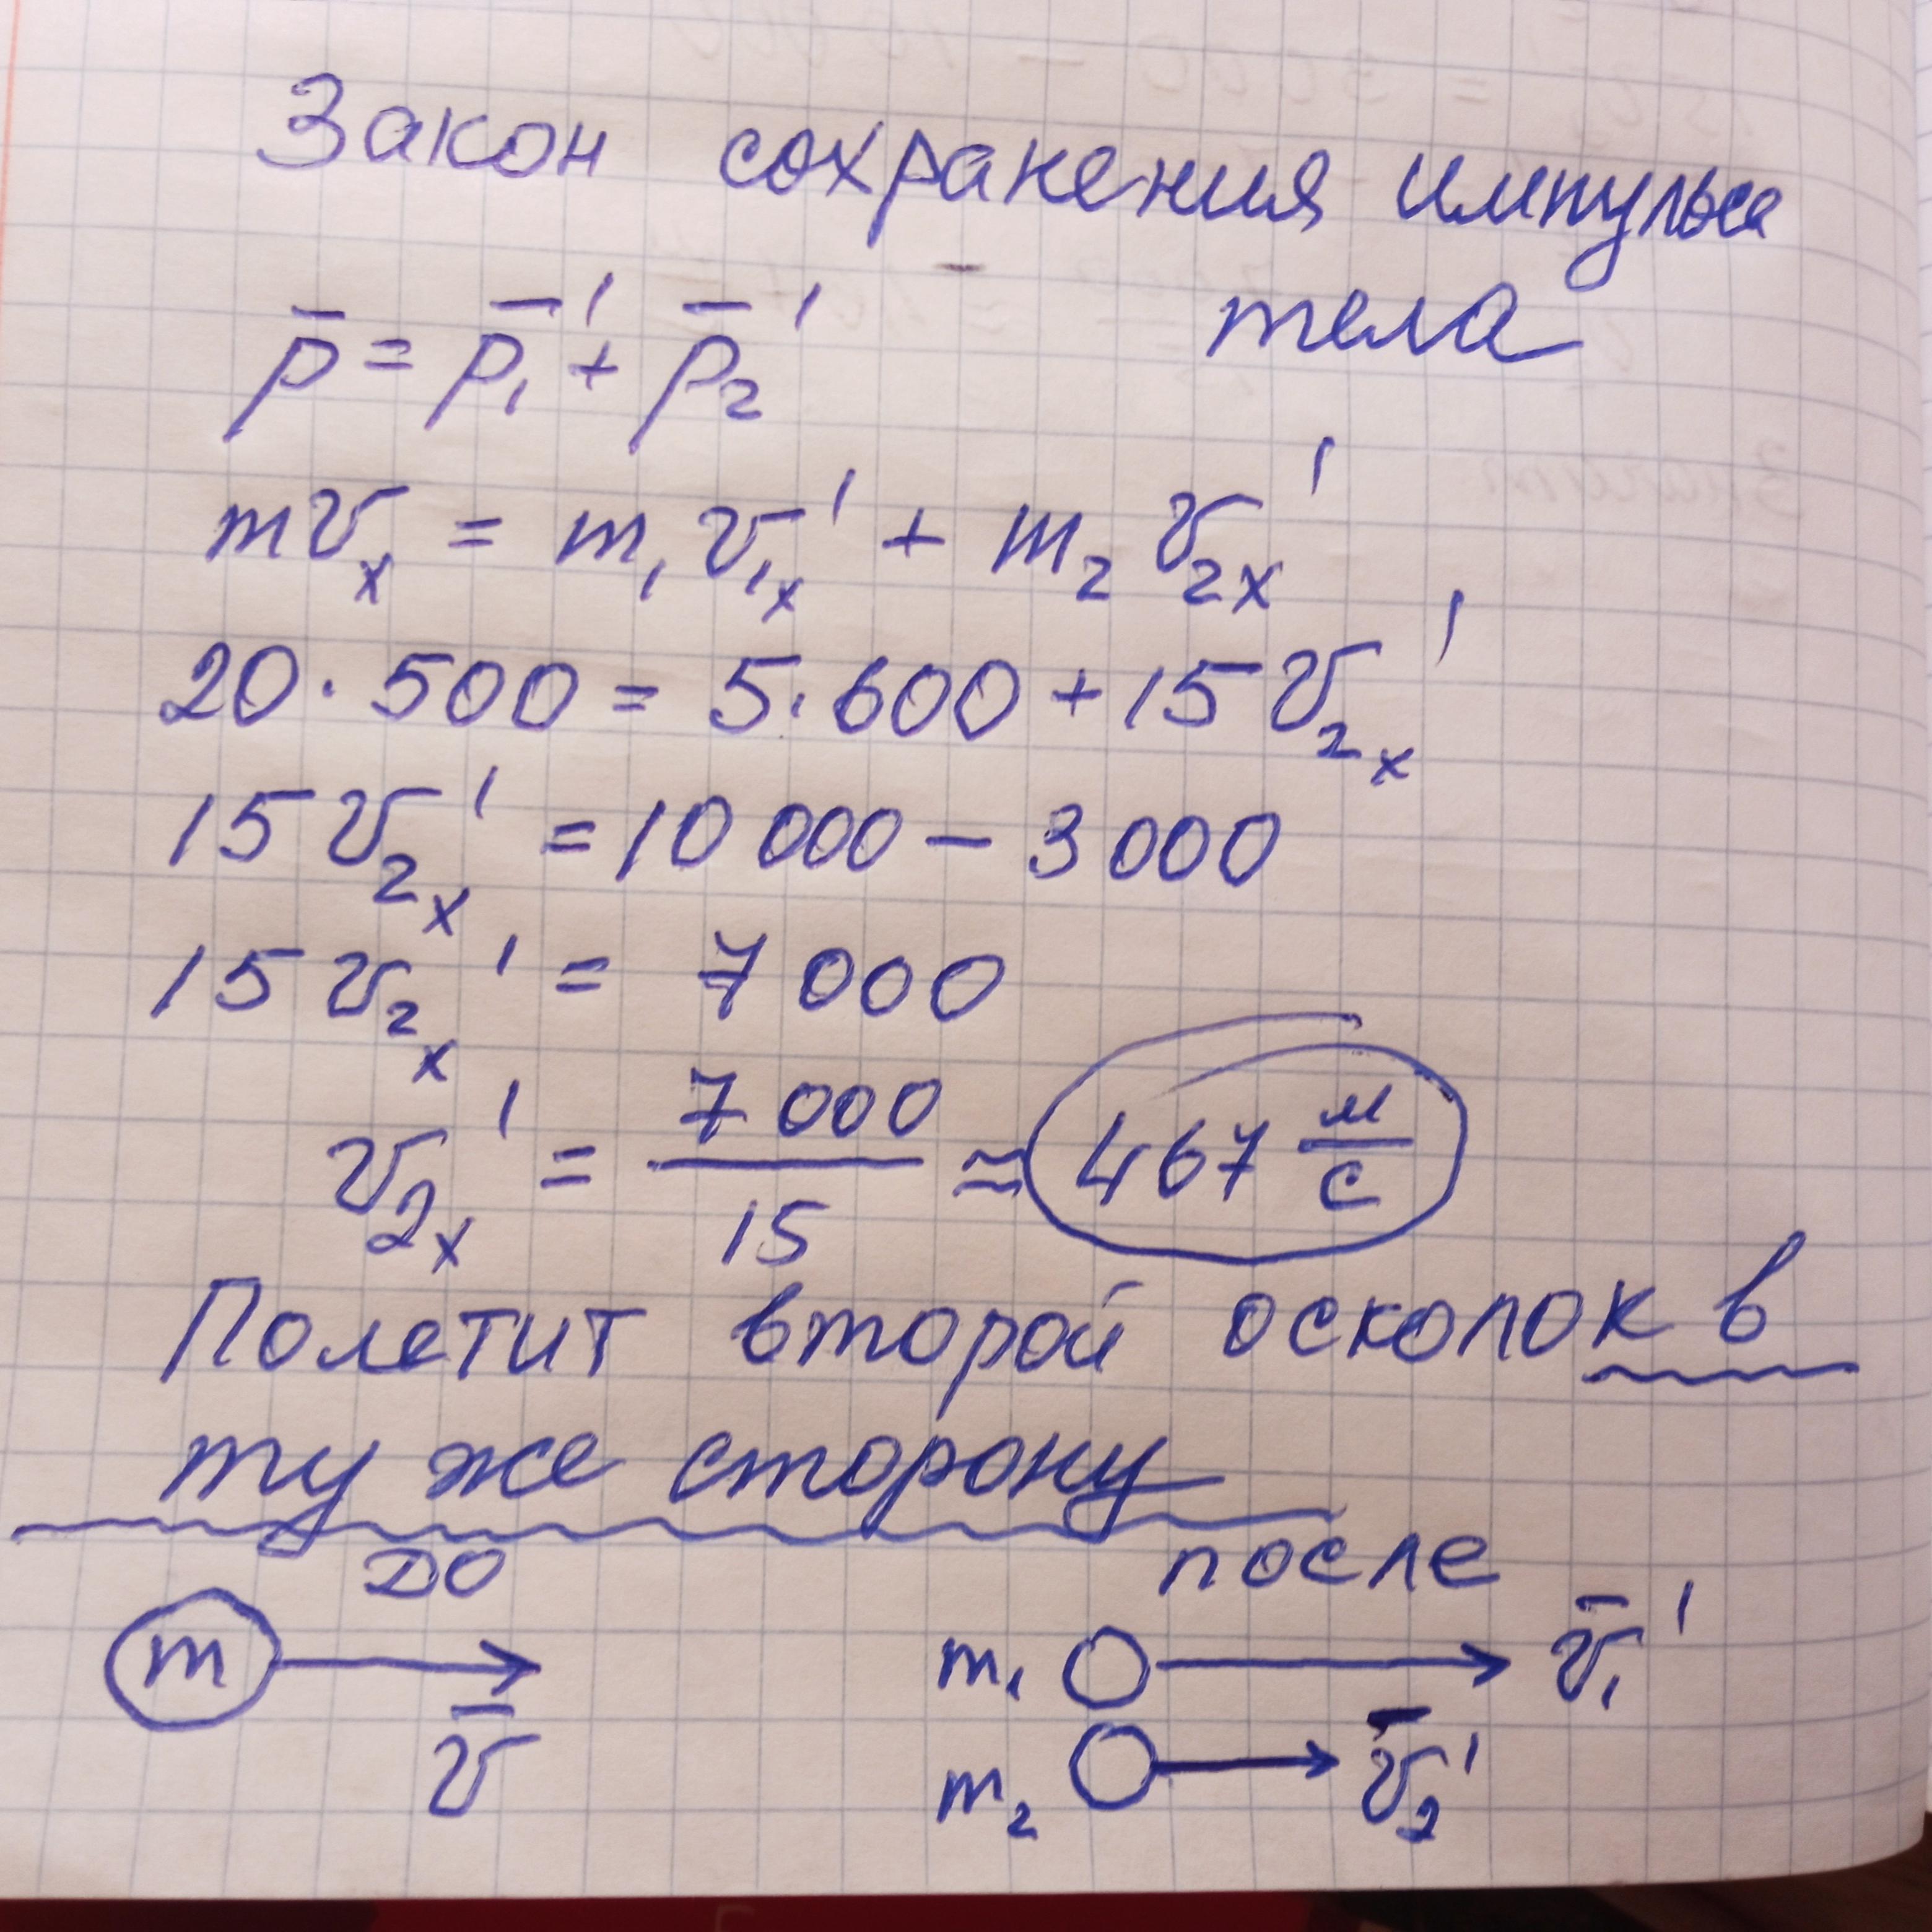 Закон сохранения импульса
тела
p̅ = p̅₁' + p̅₂'
mvₓ = m₁v₁ₓ' + m₂v₂ₓ'
20 · 500 = 5 · 600 + 15v₂ₓ'
15v₂ₓ' = 10 000 − 3 000
15v₂ₓ' = 7 000
v₂ₓ' = 7 000/15 ≈ 467 м/с
Полетит второй осколок в
ту же сторону
до после
m v̅ m₁ v̅₁'
m₂ v̅₂'